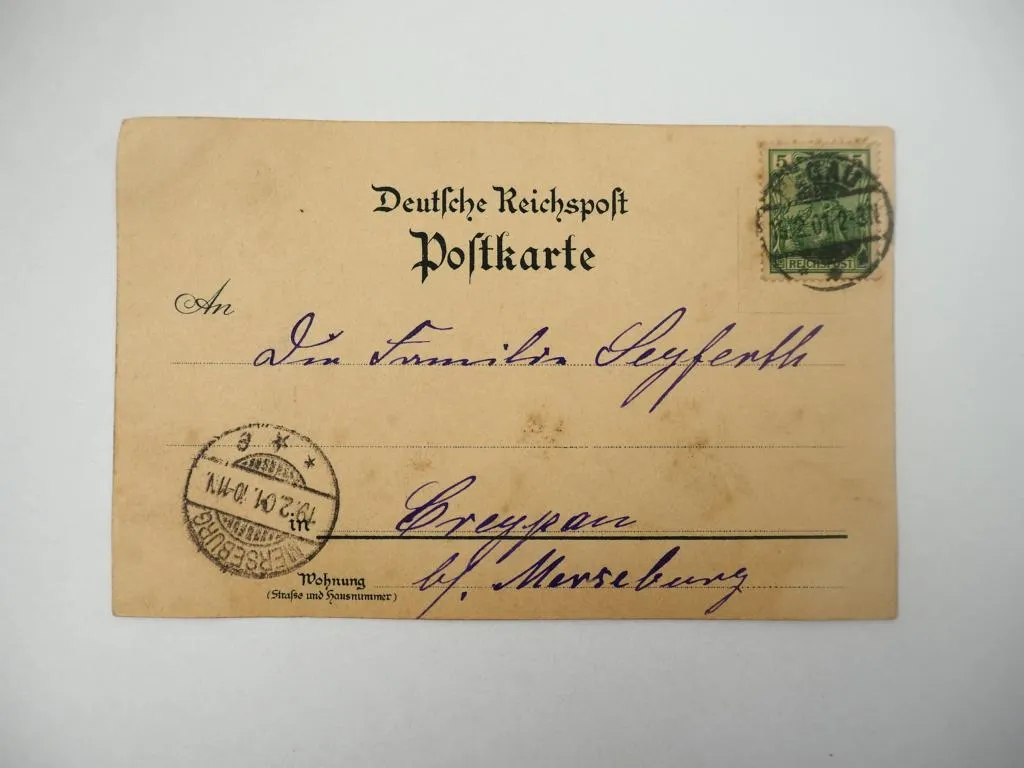 5 5
GAU
2.01
REICHSPOST
Deutsche Reichspost
Postkarte
An
Die Familie Seyferth
MERSEBURG
19.2.01. 10-11V.
in Creypau
Wohnung b/. Merseburg
(Straße und Hausnummer)